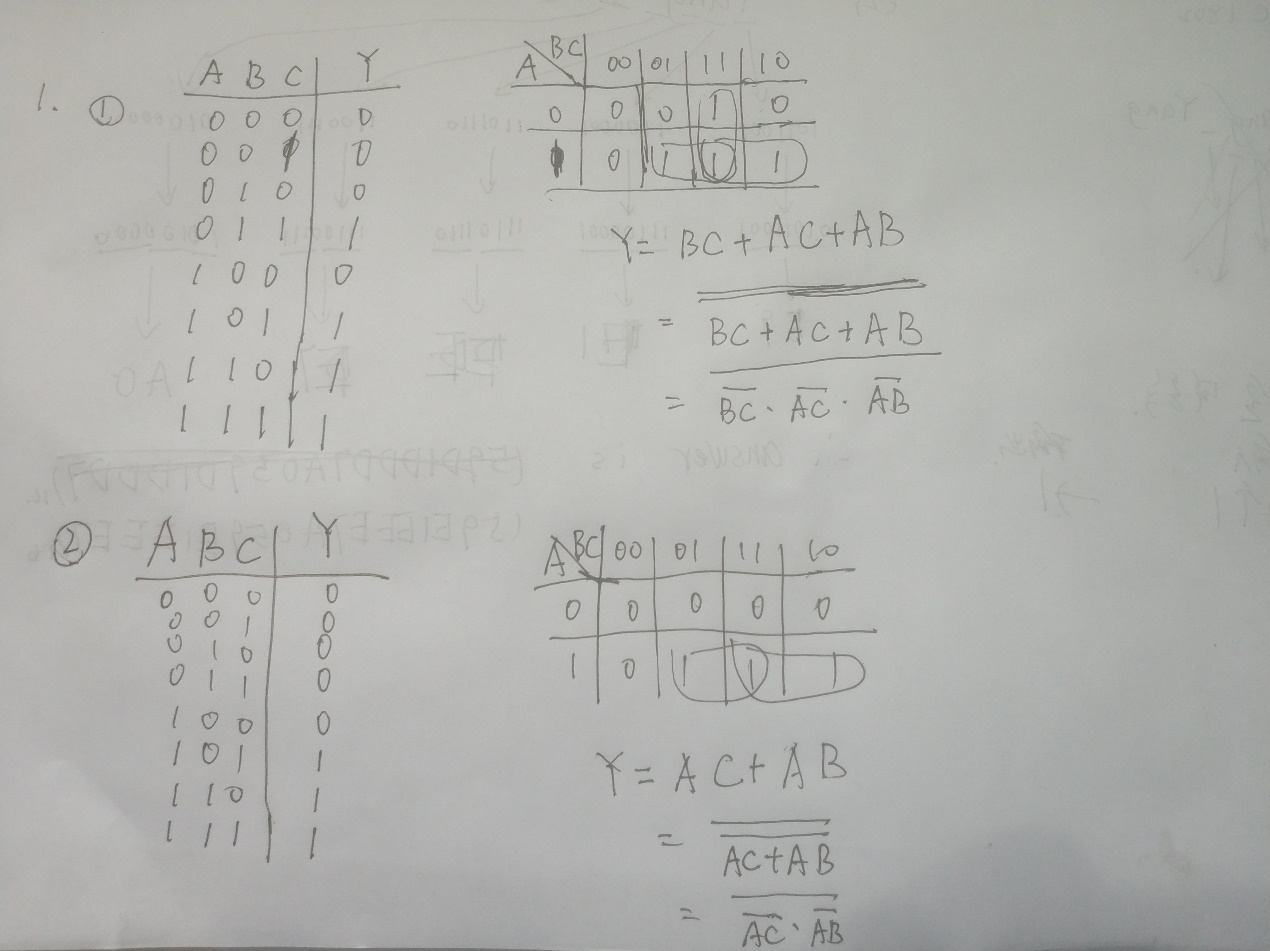 1. ① A B C Y
0 0 0 0
0 0 1 0
0 1 0 0
0 1 1 1
1 0 0 0
1 0 1 1
1 1 0 1
1 1 1 1
A BC 00 01 11 10
0 0 0 1 0
1 0 1 1 1
Y = BC + AC + AB
= \overline{\overline{BC + AC + AB}}
= \overline{\overline{BC} · \overline{AC} · \overline{AB}}
② A B C Y
0 0 0 0
0 0 1 0
0 1 0 0
0 1 1 0
1 0 0 0
1 0 1 1
1 1 0 1
1 1 1 1
A BC 00 01 11 10
0 0 0 0 0
1 0 1 1 1
Y = AC + AB
= \overline{\overline{AC + AB}}
= \overline{\overline{AC} · \overline{AB}}